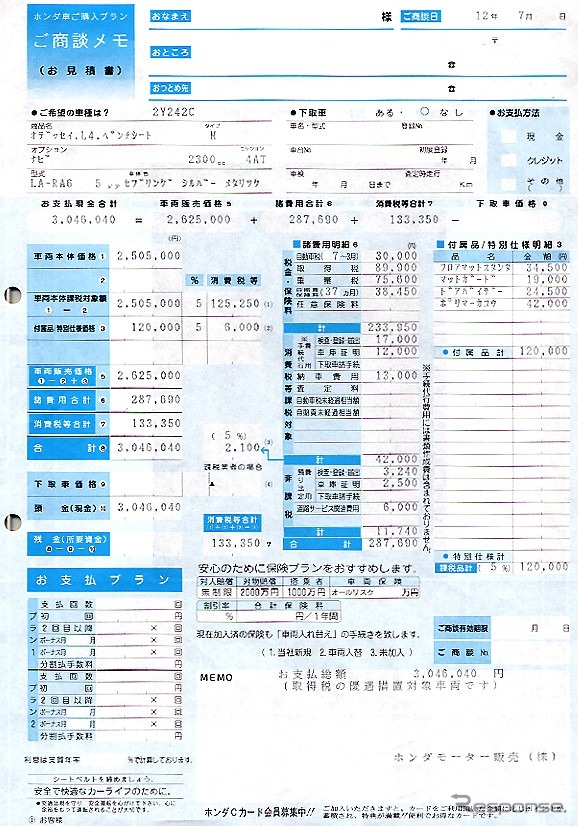 ホンダ車ご購入プラン
ご商談メモ
(お見積書)
おなまえ 様
ご商談日 12年 7月 日
おところ 〒
☎
おつとめ先 ☎
●ご希望の車種は? 2Y242C
商品名 タイプ
オデッセイ.L4.ベンチシート M
オプション ミッション
ナビ 2300cc 4AT
型式 車体色
LA-RA6 5ドア セブリング シルバー メタリック
●下取車 ある・○なし
車名・型式 登録No
車台No 初度登録
年 月
車検 査定時走行
年 月 日まで Km
●お支払方法
現金
クレジット
その他
( )
お支払現金合計 車両販売価格5 諸費用合計6 消費税等合計7 下取車価格9
3,046,040 = 2,625,000 + 287,690 + 133,350 −
(円)
車両本体価格1 2,505,000
% 消費税等
車両本体課税対象額 ①−② 2,505,000 5 125,250 (1)
付属品/特別仕様価格3 120,000 5 6,000 (2)
車両販売価格 ①−②+③ 5 2,625,000
諸費用合計6 287,690
消費税等合計7 133,350
合計8 3,046,040
下取車価格9
頭金(現金)10 3,046,040
残金(所要資金) ⑧−⑨−⑩
(5%) (3)
2,100
課税業者の場合
▲ (4)
消費税等合計
133,350 7
■諸費用明細6 (円)
税金・保険料
自動車税(7~3月) 30,000
取得税 89,900
重量税 75,600
保険料(37ヵ月) 38,450
任意保険料
計 233,950
消費税課税対象
手続代行費用
検査・登録・届出 17,000
車庫証明 12,000
下取車諸手続
納車費用 13,000
査定料
自動車税未経過相当額
自賠責未経過相当額
計 42,000
非課税
預り
検査・登録・届出 3,240
車庫証明 2,500
下取車諸手続
道路サービス関連費用 6,000
計 11,740
合計 287,690
※手続代行費用には書類作成費は含まれておりません。
■付属品/特別仕様明細3
品名 金額(円)
フロアマットスタンダ 34,500
マッドガード 19,000
ドアバイザー 24,500
ポリマーカコウ 42,000
●付属品計 120,000
●特別仕様計
課税品計(5%) 120,000
お支払プラン
プラン1
支払回数 回
初回 円
2回目以降 × 回
ボーナス月 月 × 回
ボーナス月 月 × 回
分割手数料 円
プラン2
支払回数 回
初回 円
2回目以降 × 回
ボーナス月 月 × 回
ボーナス月 月 × 回
分割手数料 円
利息は実質年率 %で計算しております。
安心のために保険プランをおすすめします。
対人賠償 対物賠償 搭乗者 車両保険
無制限 2000万円 1000万円 オールリスク 万円
割引率 合計保険料
% 円/1年間
現在加入済の保険も「車両入れ替え」の手続きを致します。
(1.当社新規 2.車両入替 3.未加入)
ご商談有効期限 月 日
ご商談No.
MEMO お支払総額 3,046,040 円
(取得税の優遇措置対象車両です)
ホンダモーター販売(株)
シートベルトを締めましょう。
安全で快適なカーライフのために。
③ お客様
ホンダCカード会員募集中!!
Response.